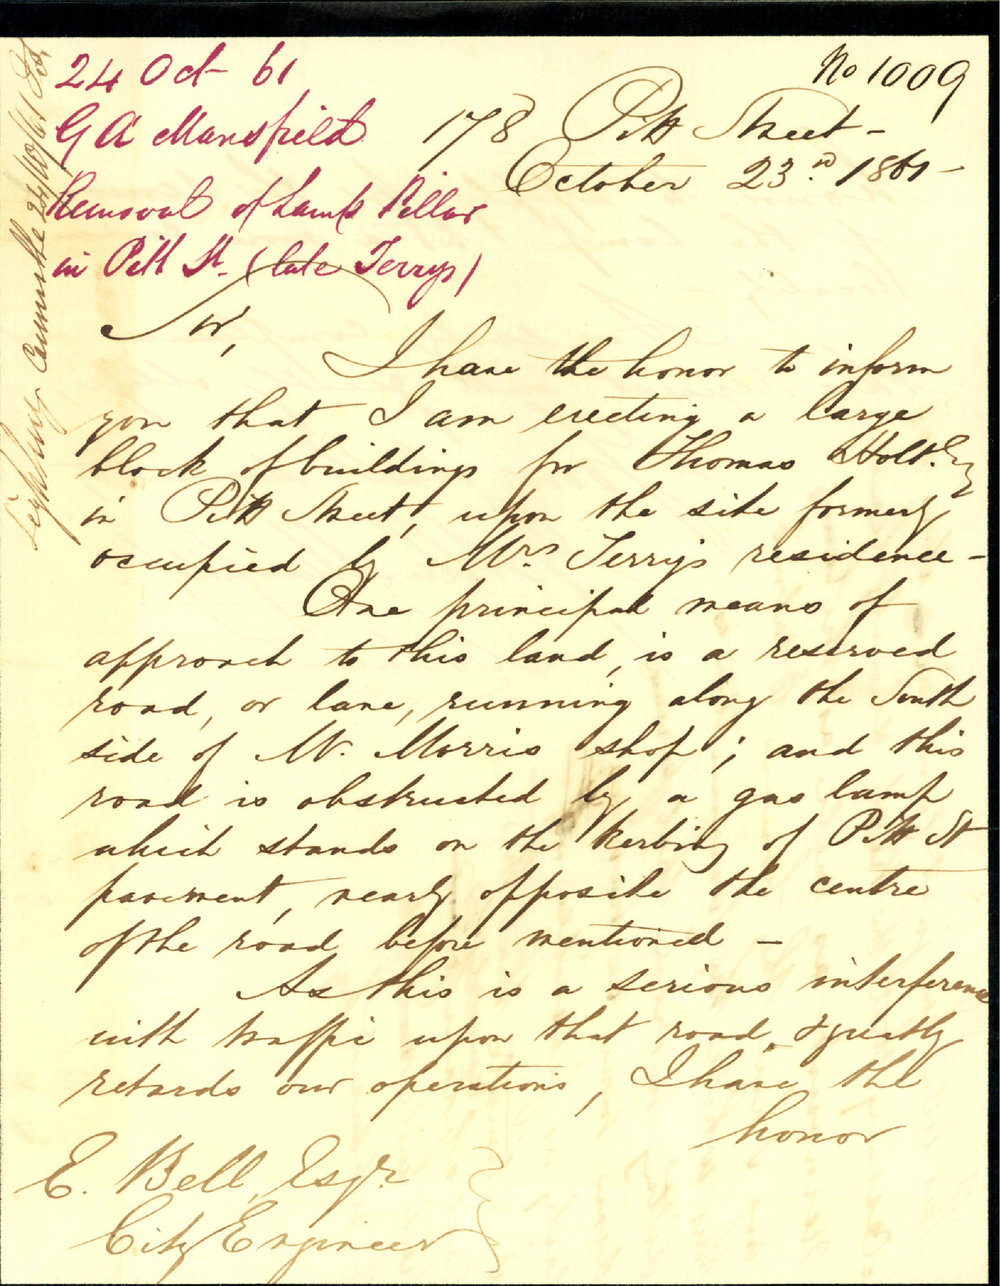 No 1009
24 Oct 61
G A Mansfield
Removal of Lamp Pillar
in Pitt St. (late Terrys)
Lighting Committee 24/10/61
178 Pitt Street -
October 23rd 1861 -
Sir,
I have the honor to inform
you that I am erecting a large
block of buildings for Thomas Holt. Esq
in Pitt Street, upon the site formerly
occupied by Mrs. Terry's residence -
One principal means of
approach to this land, is a reserved
road, or lane, running along the South
side of Mr. Morris shop; and this
road is obstructed by a gas lamp
which stands on the kerbing of Pitt St
pavement, nearly opposite the centre
of the road before mentioned -
As this is a serious interference
with traffic upon that road, & greatly
retards our operations, I have the
honor
E. Bell, Esqr.
City Engineer